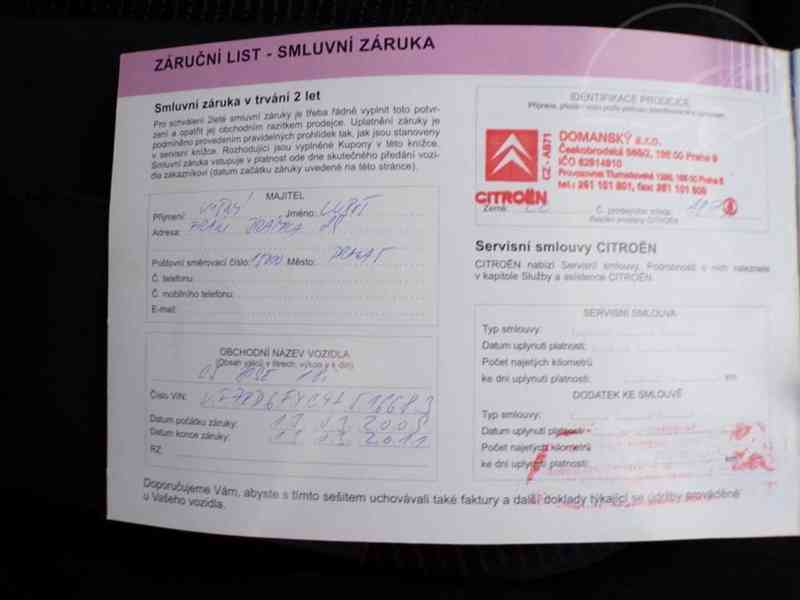 ZÁRUČNÍ LIST - SMLUVNÍ ZÁRUKA
Smluvní záruka v trvání 2 let
Pro schválení 2leté smluvní záruky je třeba řádně vyplnit toto potvr-
zení a opatřit jej obchodním razítkem prodejce. Uplatnění záruky je
podmíněno provedením pravidelných prohlídek tak, jak jsou stanoveny
v servisní knížce. Rozhodující jsou vyplněné Kupony v této knížce.
Smluvní záruka vstupuje v platnost ode dne skutečného předání vozi-
dla zákazníkovi (datum začátku záruky uvedené na této stránce).
MAJITEL
Příjmení: Jméno:
Adresa:
Poštovní směrovací číslo: Město:
Č. telefonu:
Č. mobilního telefonu:
E-mail:
OBCHODNÍ NÁZEV VOZIDLA
(Obsah válců v litrech, výkon v k din)
Číslo VIN:
Datum počátku záruky:
Datum konce záruky: 2011
RZ:
IDENTIFIKACE PRODEJCE
CITROËN
CZ - AB71
DOMANSKÝ s.r.o.
Českobrodská 566/2, 198 00 Praha 9
IČO 62914910
tel.: 261 101 801, fax: 261 101 808
Země: Č. prodejního místa:
Servisní smlouvy CITROËN
CITROËN nabízí Servisní smlouvy. Podrobnosti o nich naleznete
v kapitole Služby a asistence CITROËN.
SERVISNÍ SMLOUVA
Typ smlouvy:
Datum uplynutí platnosti:
Počet najetých kilometrů
ke dni uplynutí platnosti: km
DODATEK KE SMLOUVĚ
Typ smlouvy:
Datum uplynutí platnosti:
Počet najetých kilometrů
ke dni uplynutí platnosti: km
Doporučujeme Vám, abyste s tímto sešitem uchovávali také faktury a další doklady týkající se údržby prováděné
u Vašeho vozidla.